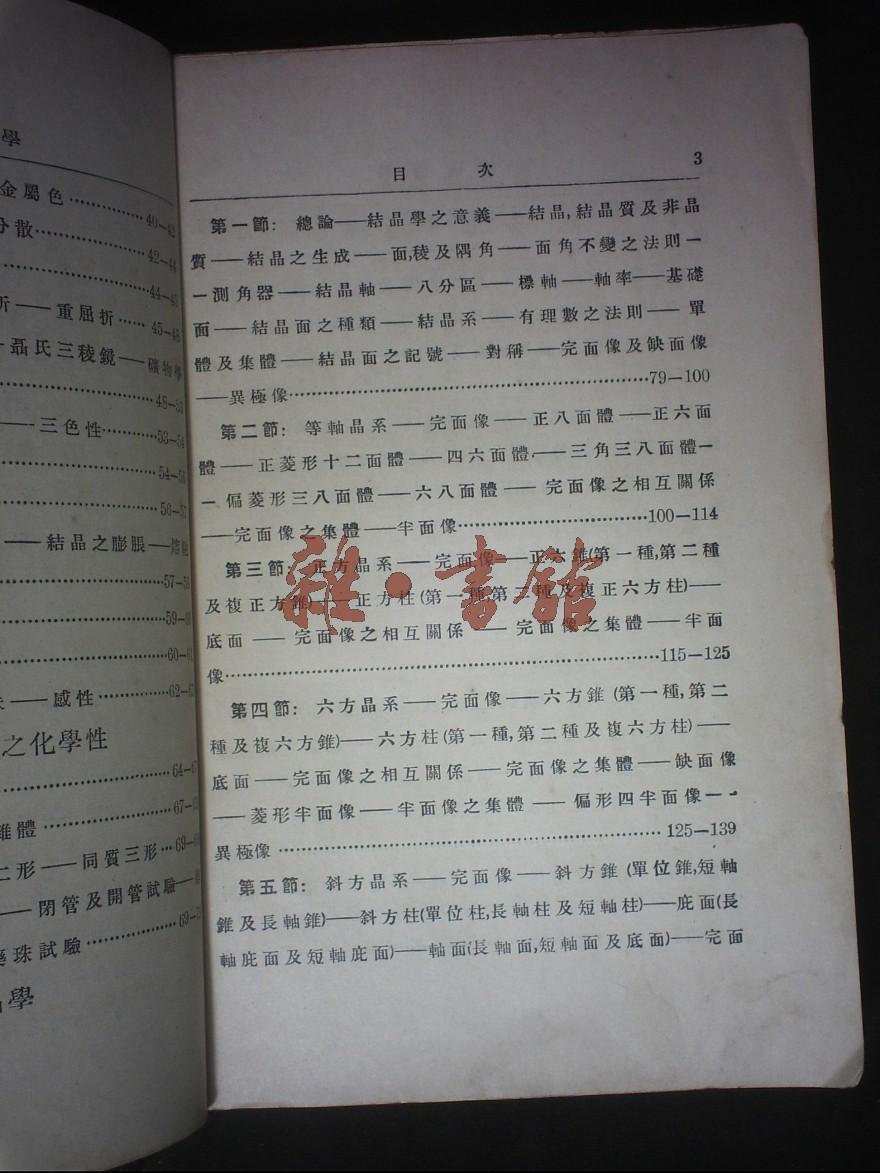 學
金屬色……………40—42
分散……………42—44
……………44—45
折——重屈折……45—48
聶氏三稜鏡——礦物學
……………48—53
——三色性…………53—54
……………54—56
……………56—57
——結晶之膨脹——熔融
……………57—59
……………59—60
……………60—62
——感性……………62—63
之化學性
……………64—67
雜體……………67—69
二形——同質三形…69—
——閉管及開管試驗——
珠試驗……………69—
學
目次 3
第一節：總論——結晶學之意義——結晶,結晶質及非晶
質——結晶之生成——面,稜及隅角——面角不變之法則—
—測角器——結晶軸——八分區——標軸——軸率——基礎
面——結晶面之種類——結晶系——有理數之法則——單
體及集體——結晶面之記號——對稱——完面像及缺面像
——異極像……………79—100
第二節：等軸晶系——完面像——正八面體——正六面
體——正菱形十二面體——四六面體——三角三八面體—
—偏菱形三八面體——六八面體——完面像之相互關係
——完面像之集體——半面像……………100—114
第三節：正方晶系——完面像——正六錐(第一種,第二種
及複正方錐)——正方柱(第一種,第二種及複正六方柱)——
底面——完面像之相互關係——完面像之集體——半面
像……………115—125
第四節：六方晶系——完面像——六方錐(第一種,第二
種及複六方錐)——六方柱(第一種,第二種及複六方柱)——
底面——完面像之相互關係——完面像之集體——缺面像
——菱形半面像——半面像之集體——偏形四半面像——
異極像……………125—139
第五節：斜方晶系——完面像——斜方錐(單位錐,短軸
錐及長軸錐)——斜方柱(單位柱,長軸柱及短軸柱)——庇面(長
軸庇面及短軸庇面)——軸面(長軸面,短軸面及底面)——完面
雜·書館